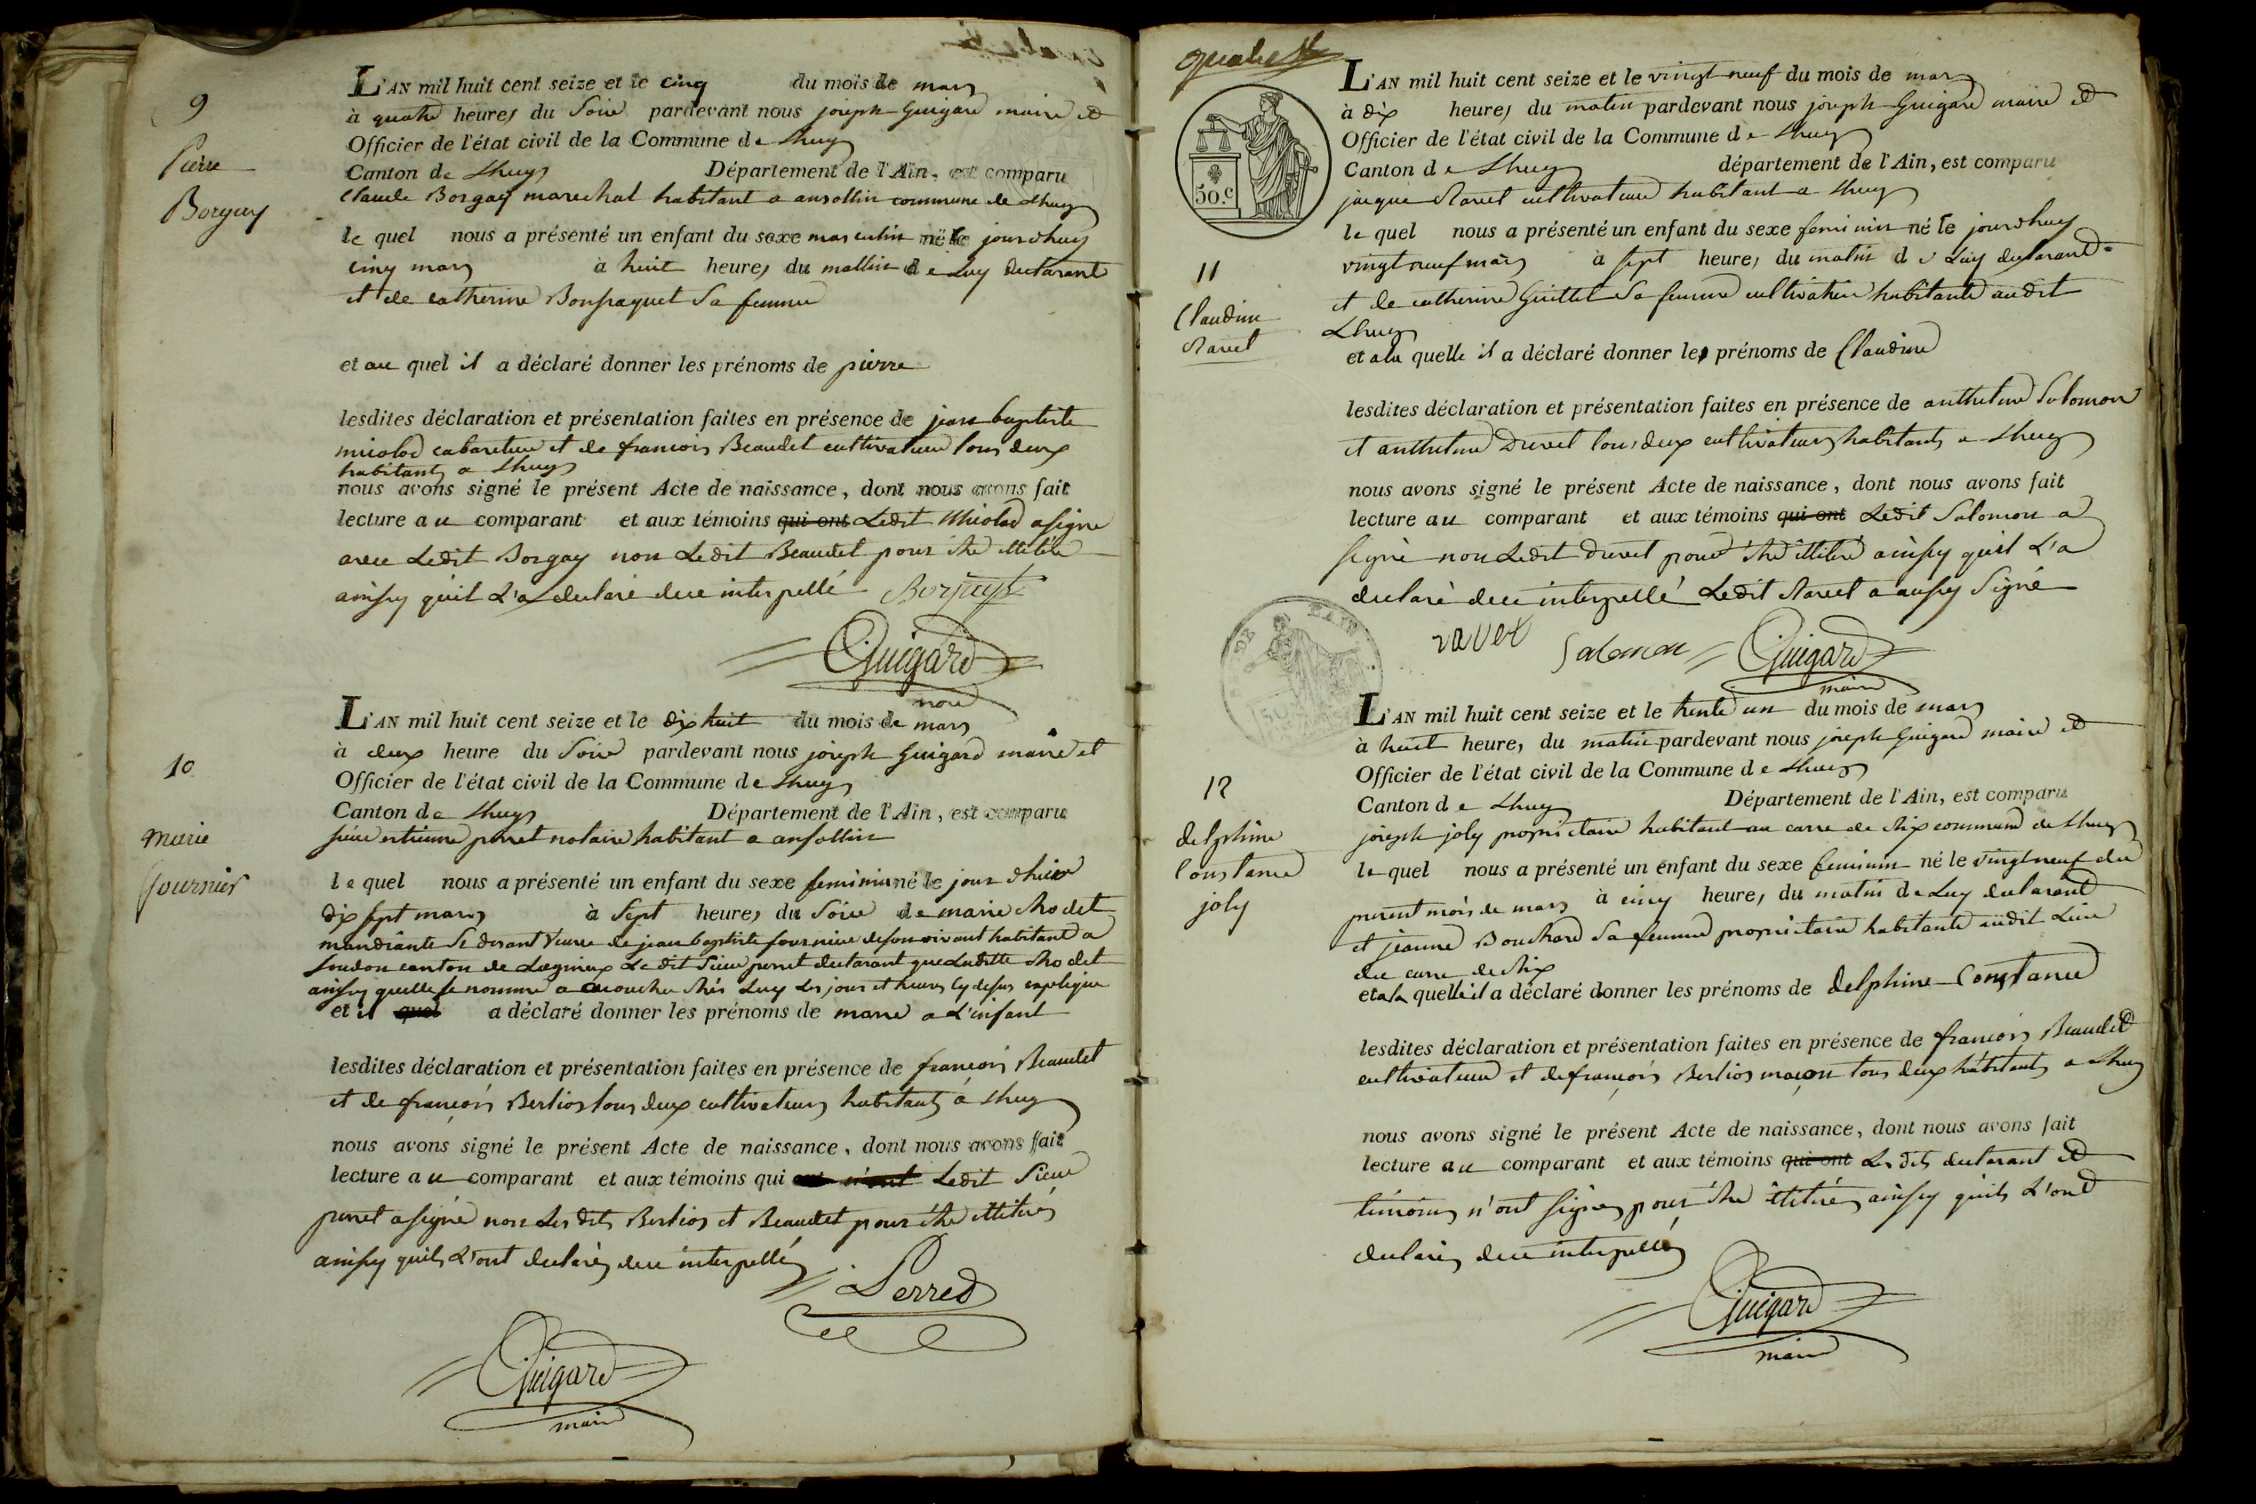 9
Pierre
Borgay
L'AN mil huit cent seize et le cinq du mois de mars
à quatre heures du Soire pardevant nous joseph Guigard maire et
Officier de l'état civil de la Commune de Lhuys
Canton de Lhuys Département de l'Ain, est comparu
Claude Borgay marechal habitant a ansollin commune de Lhuys
le quel nous a présenté un enfant du sexe masculin né le jourdhuy
cinq mars à huit heures du mattin de Luy declarant
et de catherine Bonpaquet Sa femme
et au quel il a déclaré donner les prénoms de pierre
lesdites déclaration et présentation faites en présence de jean baptiste
cabaretier et de francois Beaudet cultivateur tous deux
habitants a Lhuys
nous avons signé le présent Acte de naissance, dont nous avons fait
lecture au comparant et aux témoins qui ont Ledit a signe
avec Ledit Borgay non Ledit Beaudet pour être illitéré
ainsy quil L'a declaré deue interpellé Borgay
Guigard
maire
10
Marie
fournier
L'AN mil huit cent seize et le dix huit du mois de mars
à deux heure du Soire pardevant nous joseph Guigard maire et
Officier de l'état civil de la Commune de Lhuys
Canton de Lhuys Département de l'Ain, est comparu
Sieur estienne perret notaire habitant a ansollin
le quel nous a présenté un enfant du sexe feminin né le jour d'hier
dix sept mars à Sept heures du Soire de marie
mandiante Se disant Veuve de jean baptiste fournier de son vivant habitant a
Loudon canton de Lagnieux Le dit Sieur perret declarant que Laditte
ainsy quelle se nomme a acouche chés Luy Les jour et heures Cy desus expliqué
et il quel a déclaré donner les prénoms de marie a L'infant
lesdites déclaration et présentation faites en présence de françois Beaudet
et de françois Berlios tous deux cultivateurs habitants à Lhuys
nous avons signé le présent Acte de naissance, dont nous avons fait
lecture au comparant et aux témoins qui Ledit Sieur
perret a signé non Les dits Berlios et Beaudet pour être illitérés
ainsy quils L'ont declarés deue interpellés
Perret
Guigard
maire
50.c
11
Claudine
Ravet
L'AN mil huit cent seize et le vingt neuf du mois de mars
à dix heures du matin pardevant nous joseph Guigard maire et
Officier de l'état civil de la Commune de Lhuys
Canton de Lhuys département de l'Ain, est comparu
jacque Ravet cultivateur habitant a Lhuys
le quel nous a présenté un enfant du sexe feminin né le jourdhuy
vingt neuf mars à sept heures du matin de Luy declarant
et de catherine Guittet Sa femme cultivatrice habitante audit
Lhuys
et a la quelle il a déclaré donner les prénoms de Claudine
lesdites déclaration et présentation faites en présence de anthelme Salomon
et anthelme Duret tous deux cultivateurs habitants a Lhuys
nous avons signé le présent Acte de naissance, dont nous avons fait
lecture au comparant et aux témoins qui ont Ledit Salomon a
signé non Ledit Duret pour être illitéré ainsy quil L'a
declaré deue interpellé Ledit Ravet a ausy Signé
ravet Salomon Guigard
maire
12
delphine
Constance
joly
L'AN mil huit cent seize et le trente un du mois de mars
à huit heures du matin pardevant nous joseph Guigard maire et
Officier de l'état civil de la Commune de Lhuys
Canton de Lhuys Département de l'Ain, est comparu
joseph joly propriétaire habitant au carre de commune de Lhuys
le quel nous a présenté un enfant du sexe feminin né le vingt neuf du
present mois de mars à cinq heures du matin de Luy declarant
et jeanne Bouchard Sa femme propriétaire habitante audit Lieu
du carre de
et a la quelle il a déclaré donner les prénoms de delphine Constance
lesdites déclaration et présentation faites en présence de françois Beaudet
cultivateur et de françois Berlios maçon tous deux habitants a Lhuys
nous avons signé le présent Acte de naissance, dont nous avons fait
lecture au comparant et aux témoins qui ont Les dits declarant et
témoins n'ont signés pour être illitérés ainsy quils L'ont
declarés deue interpellés
Guigard
maire